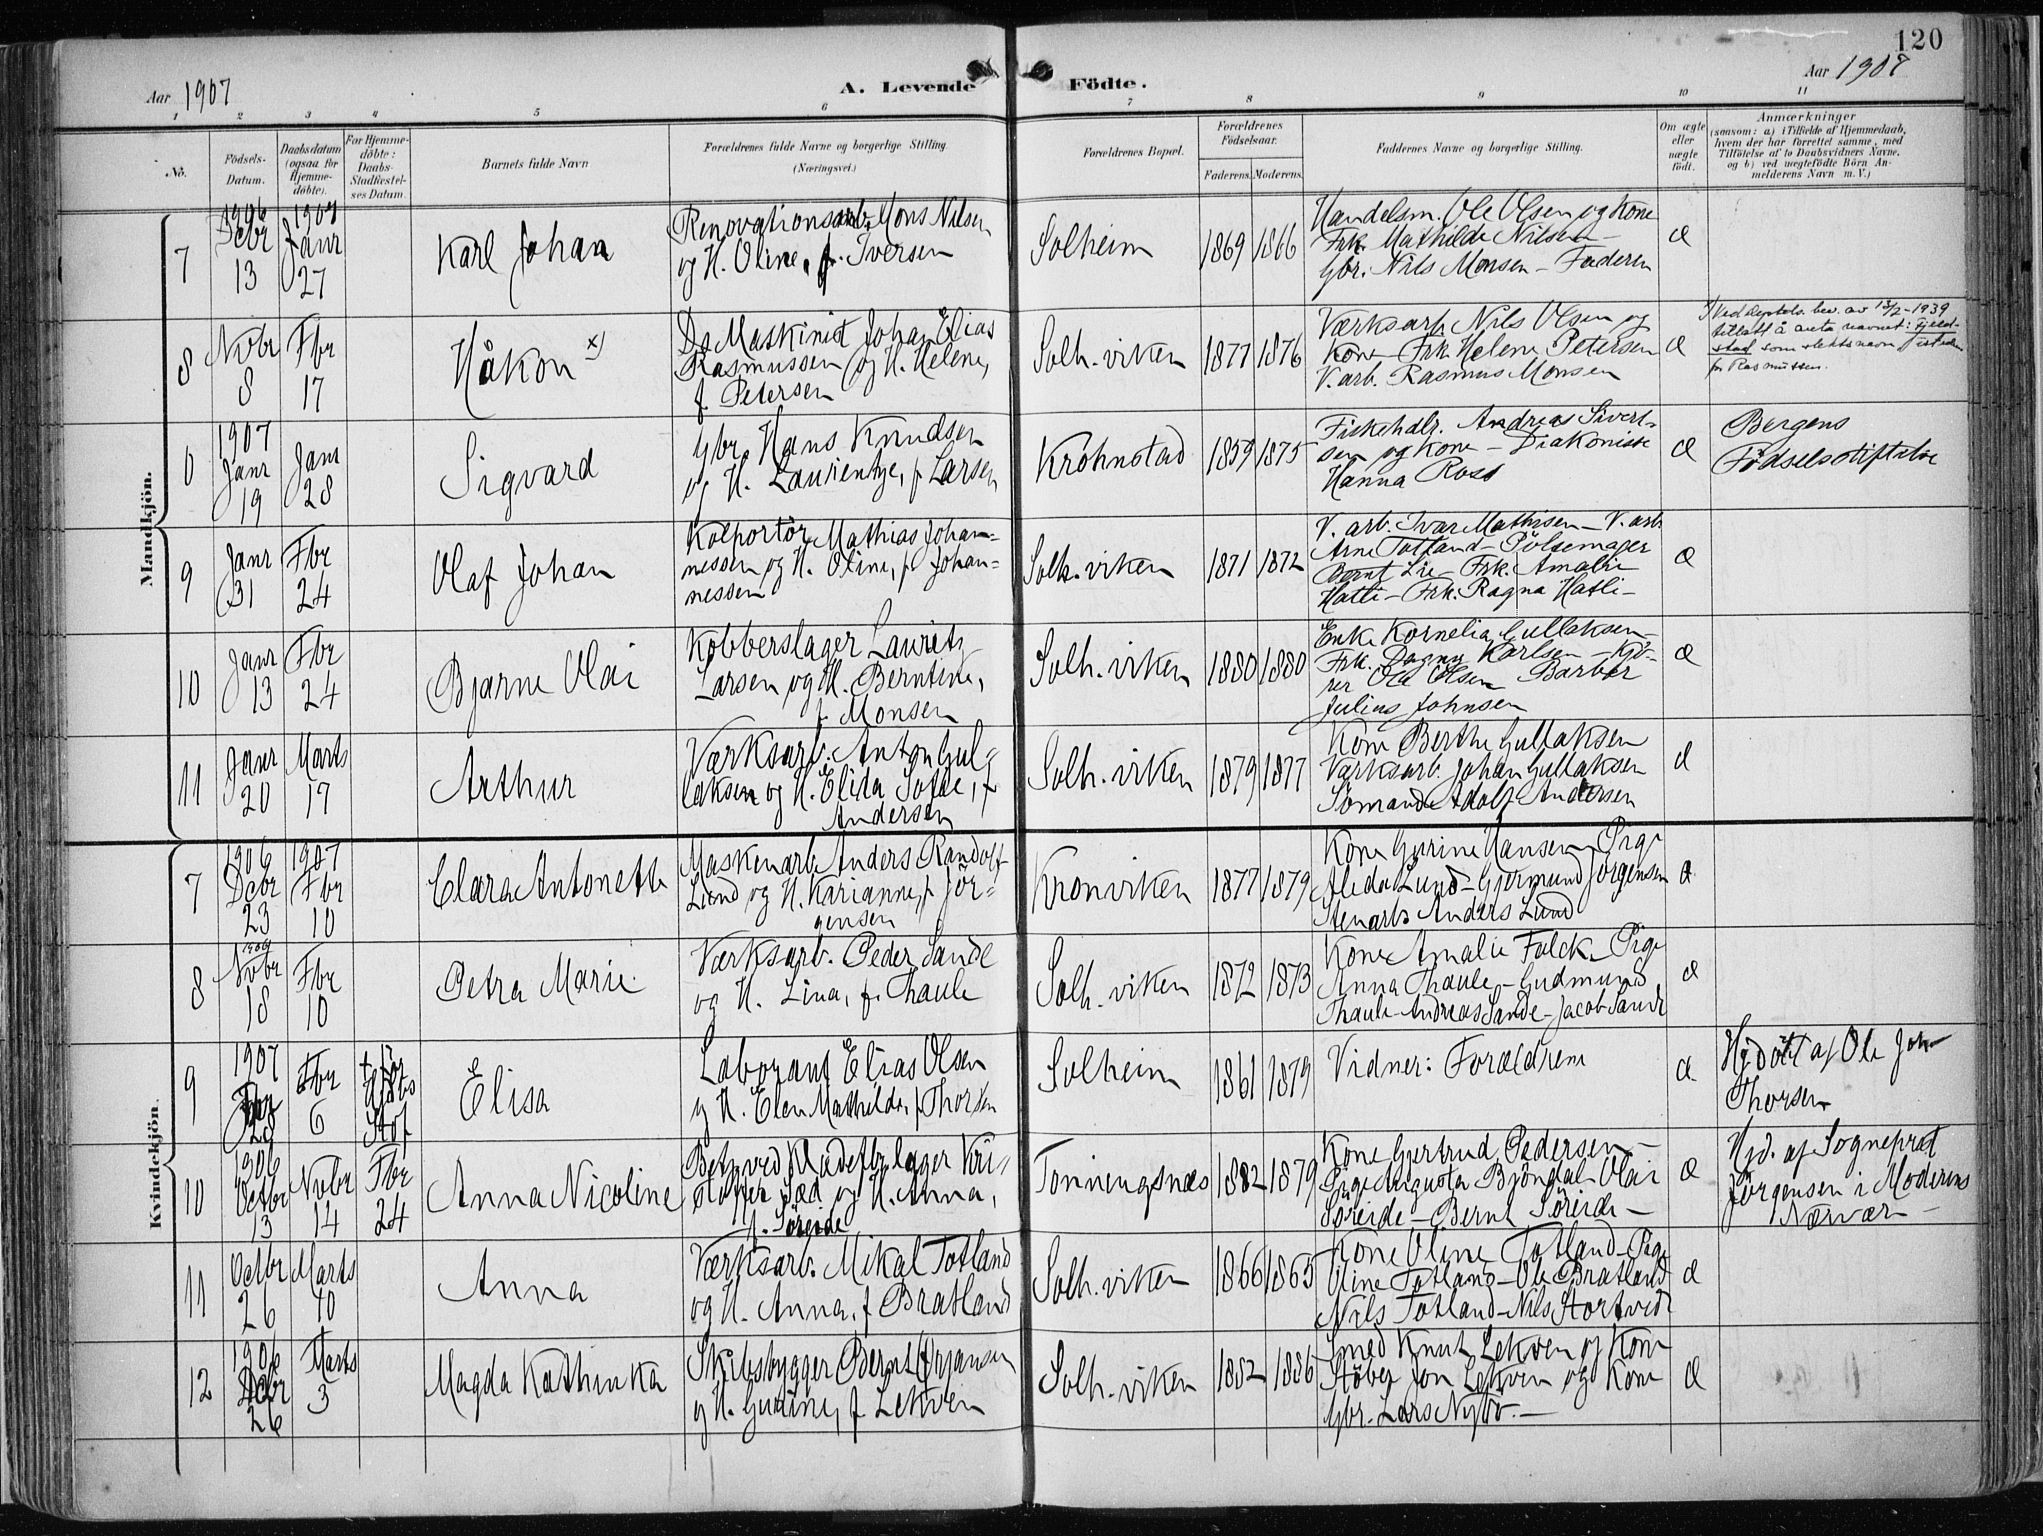 120
Aar 1907
A. Levende Födte.
Aar 1907
1 2 3 4 5 6 7 8 9 10 11
No.
Födsels-
Datum.
Daabsdatum
(ogsaa for
Hjemme-
döbte).
For Hjemme-
döbte:
Daabs-
Stadfæstel-
ses Datum.
Barnets fulde Navn
Forældrenes fulde Navne og borgerlige Stilling.
(Næringsvei.)
Forældrenes Bopæl.
Forældrenes
Födselsaar.
Faderens. Moderens.
Faddernes Navne og borgerlige Stilling.
Om ægte
eller
uægte
födt.
Anmærkninger
(saasom: a) i Tilfælde af Hjemmedaab,
hvem der har forrettet samme, med
Tilföielse af to Daabsvidners Navne,
og b) ved uægtefödte Börn An-
melderens Navn m. V.)
Mandkjön.
7
1906
Debr
13
1907
Janr
27
Karl Johan
Renovationsarb. Mons Nilsen
og H. Oline, f. Iversen
Solheim
1869 1866
Handelsm. Ole Olsen og Kone
Frk. Mathilde Nilsen -
Gbr. Nils Monsen - Faderen
Æ
8
Nvbr
8
Fbr
17
Håkon x)
Ds Maskinist Johan Elias
Rasmussen og H. Helene,
f. Petersen
Solh. viken
1877 1876
Værksarb. Nils Olsen og
Kone - Frk. Helene Petersen
V.arb. Rasmus Monsen
Æ
x) Ved deptets. bev. av 13/2-1939
tillatt å anta navnet: Gjeld-
stad som slektsnavn isteden
for Rasmussen.
0
1907
Janr
19
Janr
28
Sigvard
Gbr. Hans Knudsen
og H. Laurentze, f. Larsen
Krohnstad
1859 1875
Fiskehdlr. Andreas Sivert-
sen og kone - Diakonisse
Hanna Ross
Æ
Bergens
Fødselsstiftelse
9
Janr
31
Fbr
24
Olaf Johan
Kolportör Mathias Johan-
nessen og H. Oline, f. Johan-
nessen
Solh. viken
1871 1872
V. arb. Ivar Mathisen - V. arb
Arne Totland - Pölsemager
Bernt Lie - Frk. Amalie
Hatli - Frk. Ragna Hatli -
Æ
10
Janr
13
Fbr
24
Bjarne Olai
Kobberslager Lauritz
Larsen og H. Berntine,
f. Monsen
Solh. viken
1880 1880
Enke Kornelia Gullaksen -
Frk. Dagny Karlsen - Kjö-
rer Ole Olsen Barber
Julius Johnsen
Æ
11
Janr
20
Marts
17
Arthur
Værksarb. Anton Gul-
laksen og H. Elida Sofie, f.
Andersen
Solh. viken
1879 1877
Kone Berthe Gullaksen
Værksarb. Johan Gullaksen
Sömand Adolf Andersen
Æ
Kvindekjön.
7
1906
Debr
23
1907
Fbr
10
Clara Antonette
Maskenarb. Anders Randolf
Lund og H. Karianne, f. Jör-
gensen
Kronviken
1877 1879
Kone Gurine Hansen Pige
Alida Lund - Gjermund Jörgensen
Stenarb. Anders Lund
Æ
8
1906
Nvbr
18
Fbr
10
Petra Marie
Værksarb. Peder Sande
og H. Lina, f. Thaule
Solh. viken
1872 1873
Kone Amalie Falck - Pige
Anna Thaule - Gudmund
Thaule - Andreas Sande - Jacob Sande
Æ
9
1907
28
Fbr
6
Elisa
Laborant Elias Olsen
og H. Elen Mathilde, f. Thorsen
Solheim
1861 1879
Vidner: Forældrene
Æ
Hjdöbt af Ole Joh
Thorsen
10
1906
Octbr
13
Nvbr
14
Fbr
24
Anna Nicoline
og H. Anna,
f. Söreide
Tonningsnæs
1882 1879
Kone Gjertrud Pedersen -
Pige Augusta Bjöndal - Olai
Söreide - Bernt Söreide -
Æ
Hjd. af Sogneprst
Jörgensen i Moderens
Nærvær -
11
Octbr
26
Marts
10
Anna
Værksarb. Mikal Totland
og H. Anna, f. Bratland
Solh. viken
1866 1865
Kone Oline Totland - Pige
Oline Totland - Ole Bratland
Nils Totland - Nils Stortvedt
Æ
12
1906
Dcbr
26
Marts
3
Magda Kathinka
Skibsbygger Bernt Johansen
og H. Gurine, f. Lekven
Solh. viken
1882 1886
Smed Knut Lekven og Kone
Stöber Jon Lekven og Kone
Gbr. Lars Nybö. -
Æ